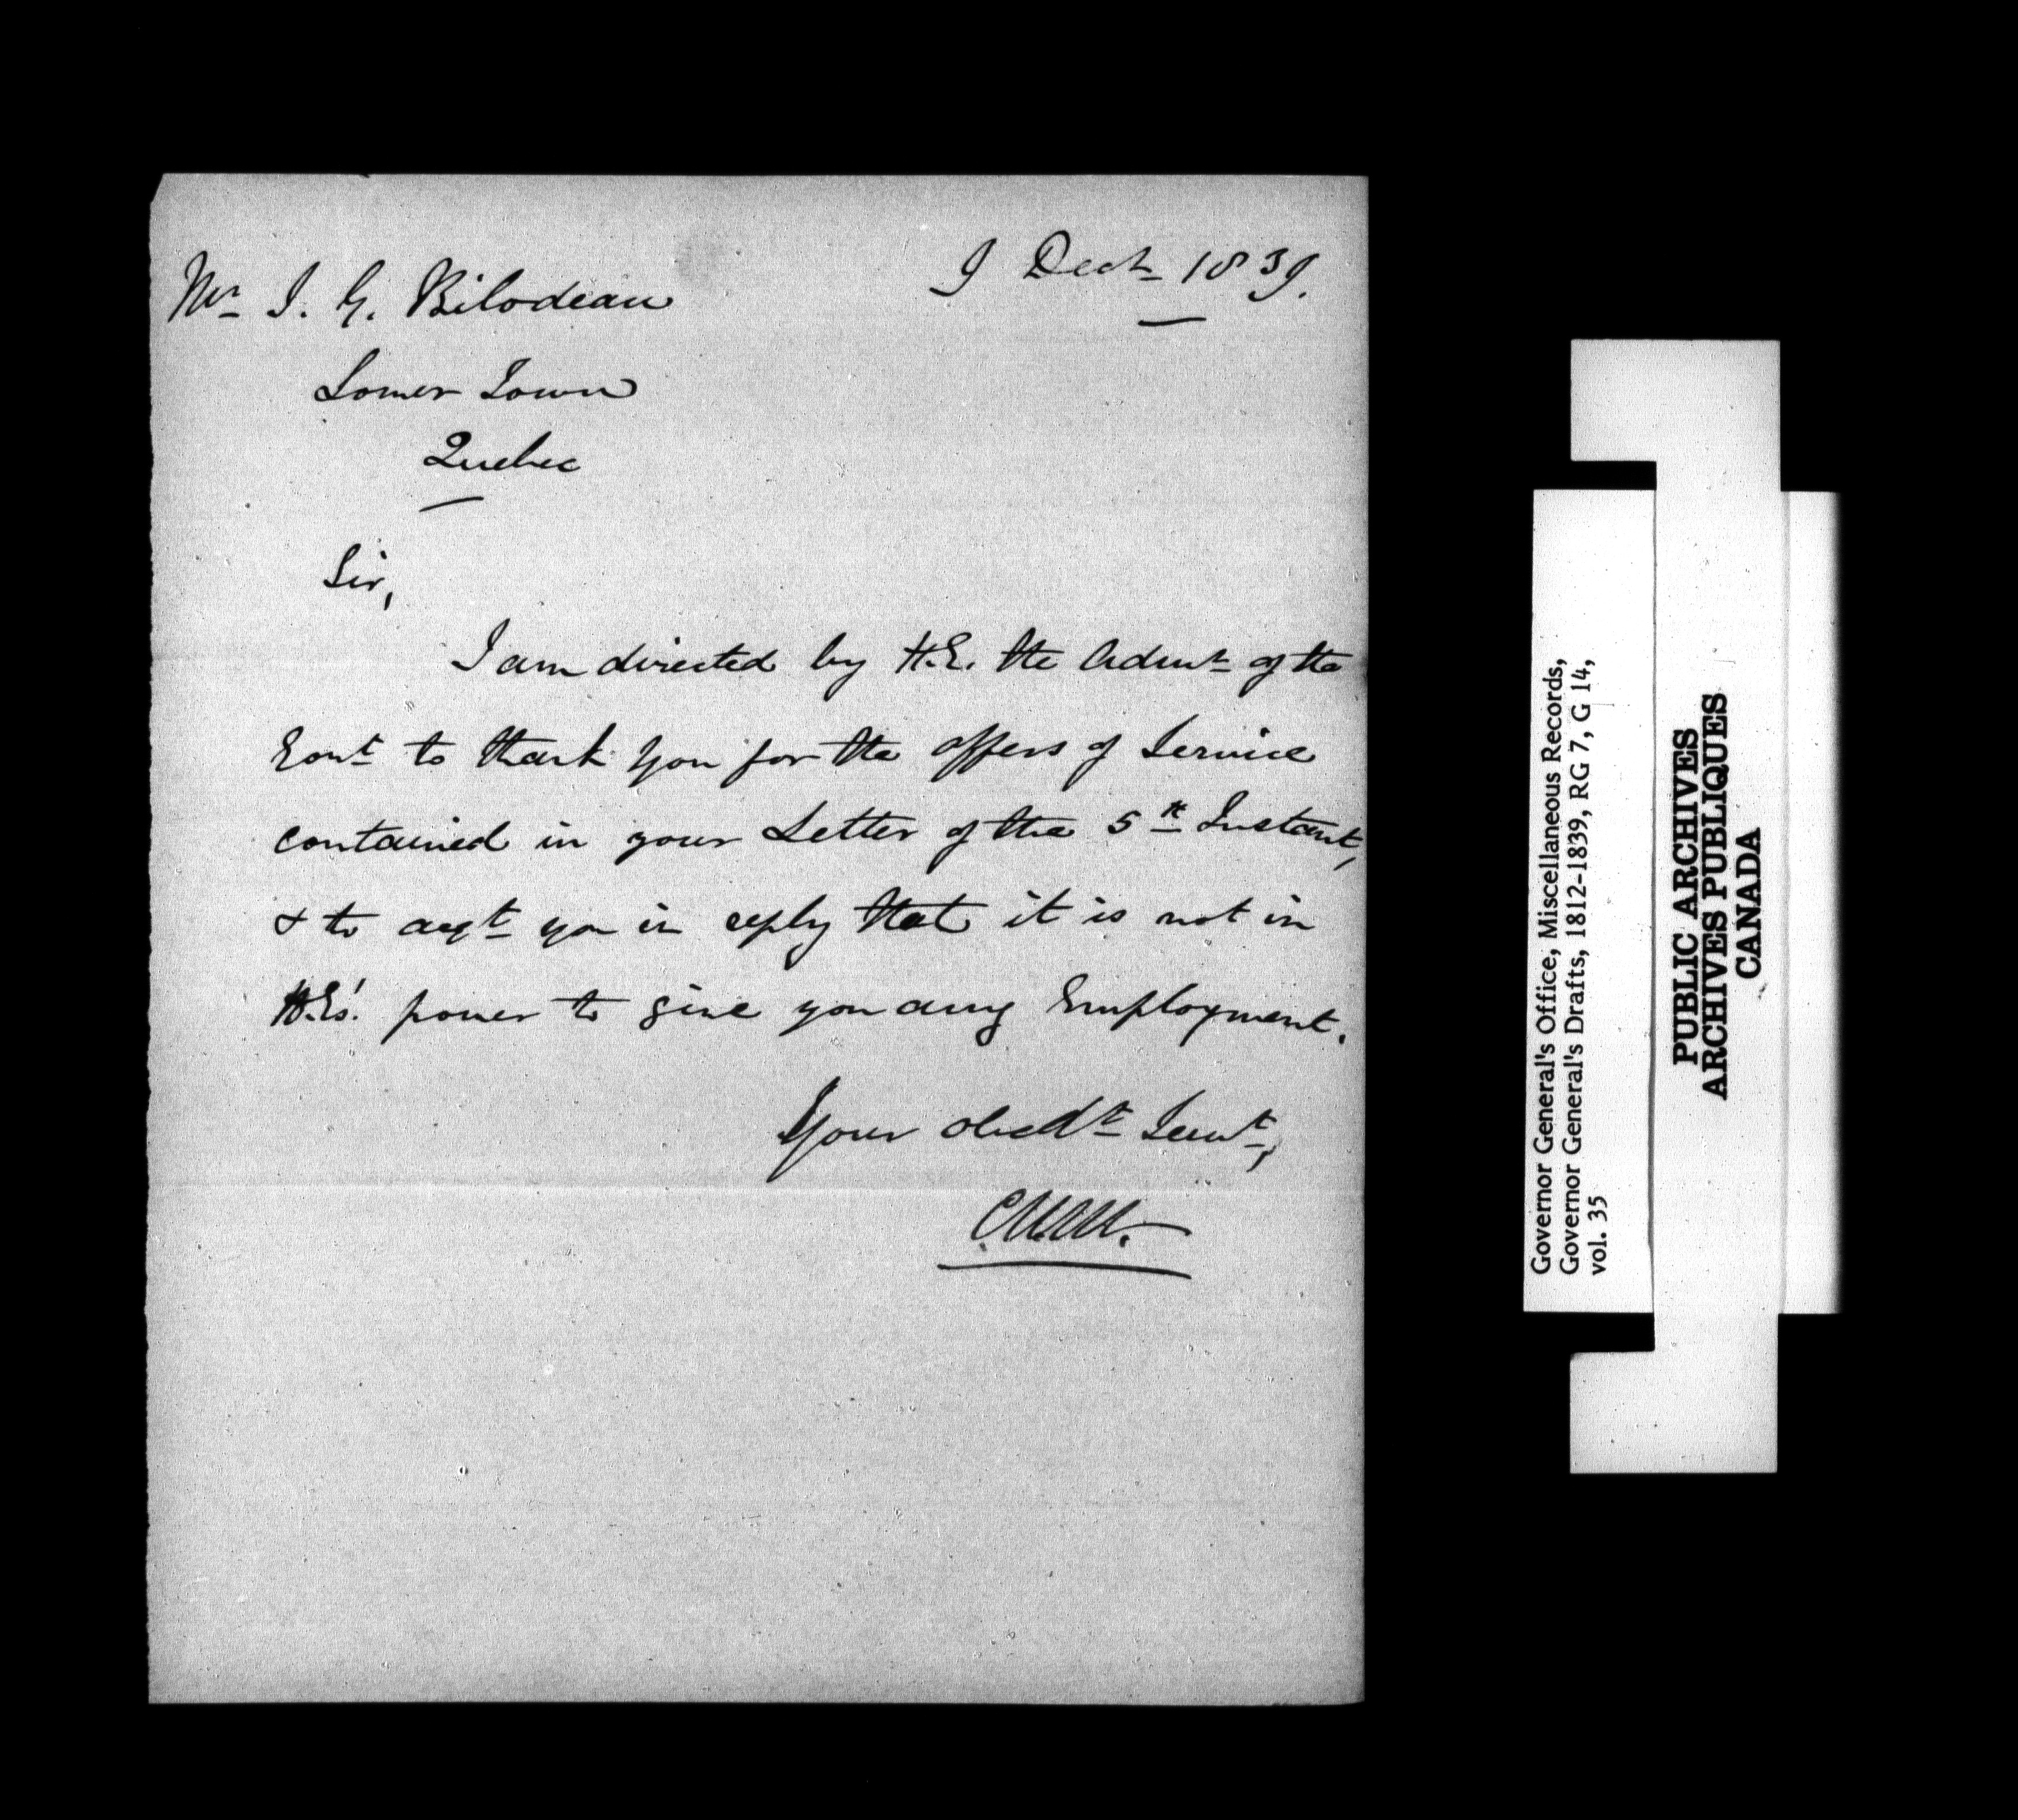 9 Decr 1839.
Mr J. G. Bilodeau
Lower Town
Quebec
Sir,
I am directed by H.E. the Admr of the
Govt to thank you for the offers of Service
contained in your Letter of the 5th Instant,
& to acqt you in reply that it is not in
H.E's. power to give you any Employment.
Your obedt Servt,
Governor General's Office, Miscellaneous Records,
Governor General's Drafts, 1812-1839, RG 7, G 14,
vol. 35
PUBLIC ARCHIVES
ARCHIVES PUBLIQUES
CANADA